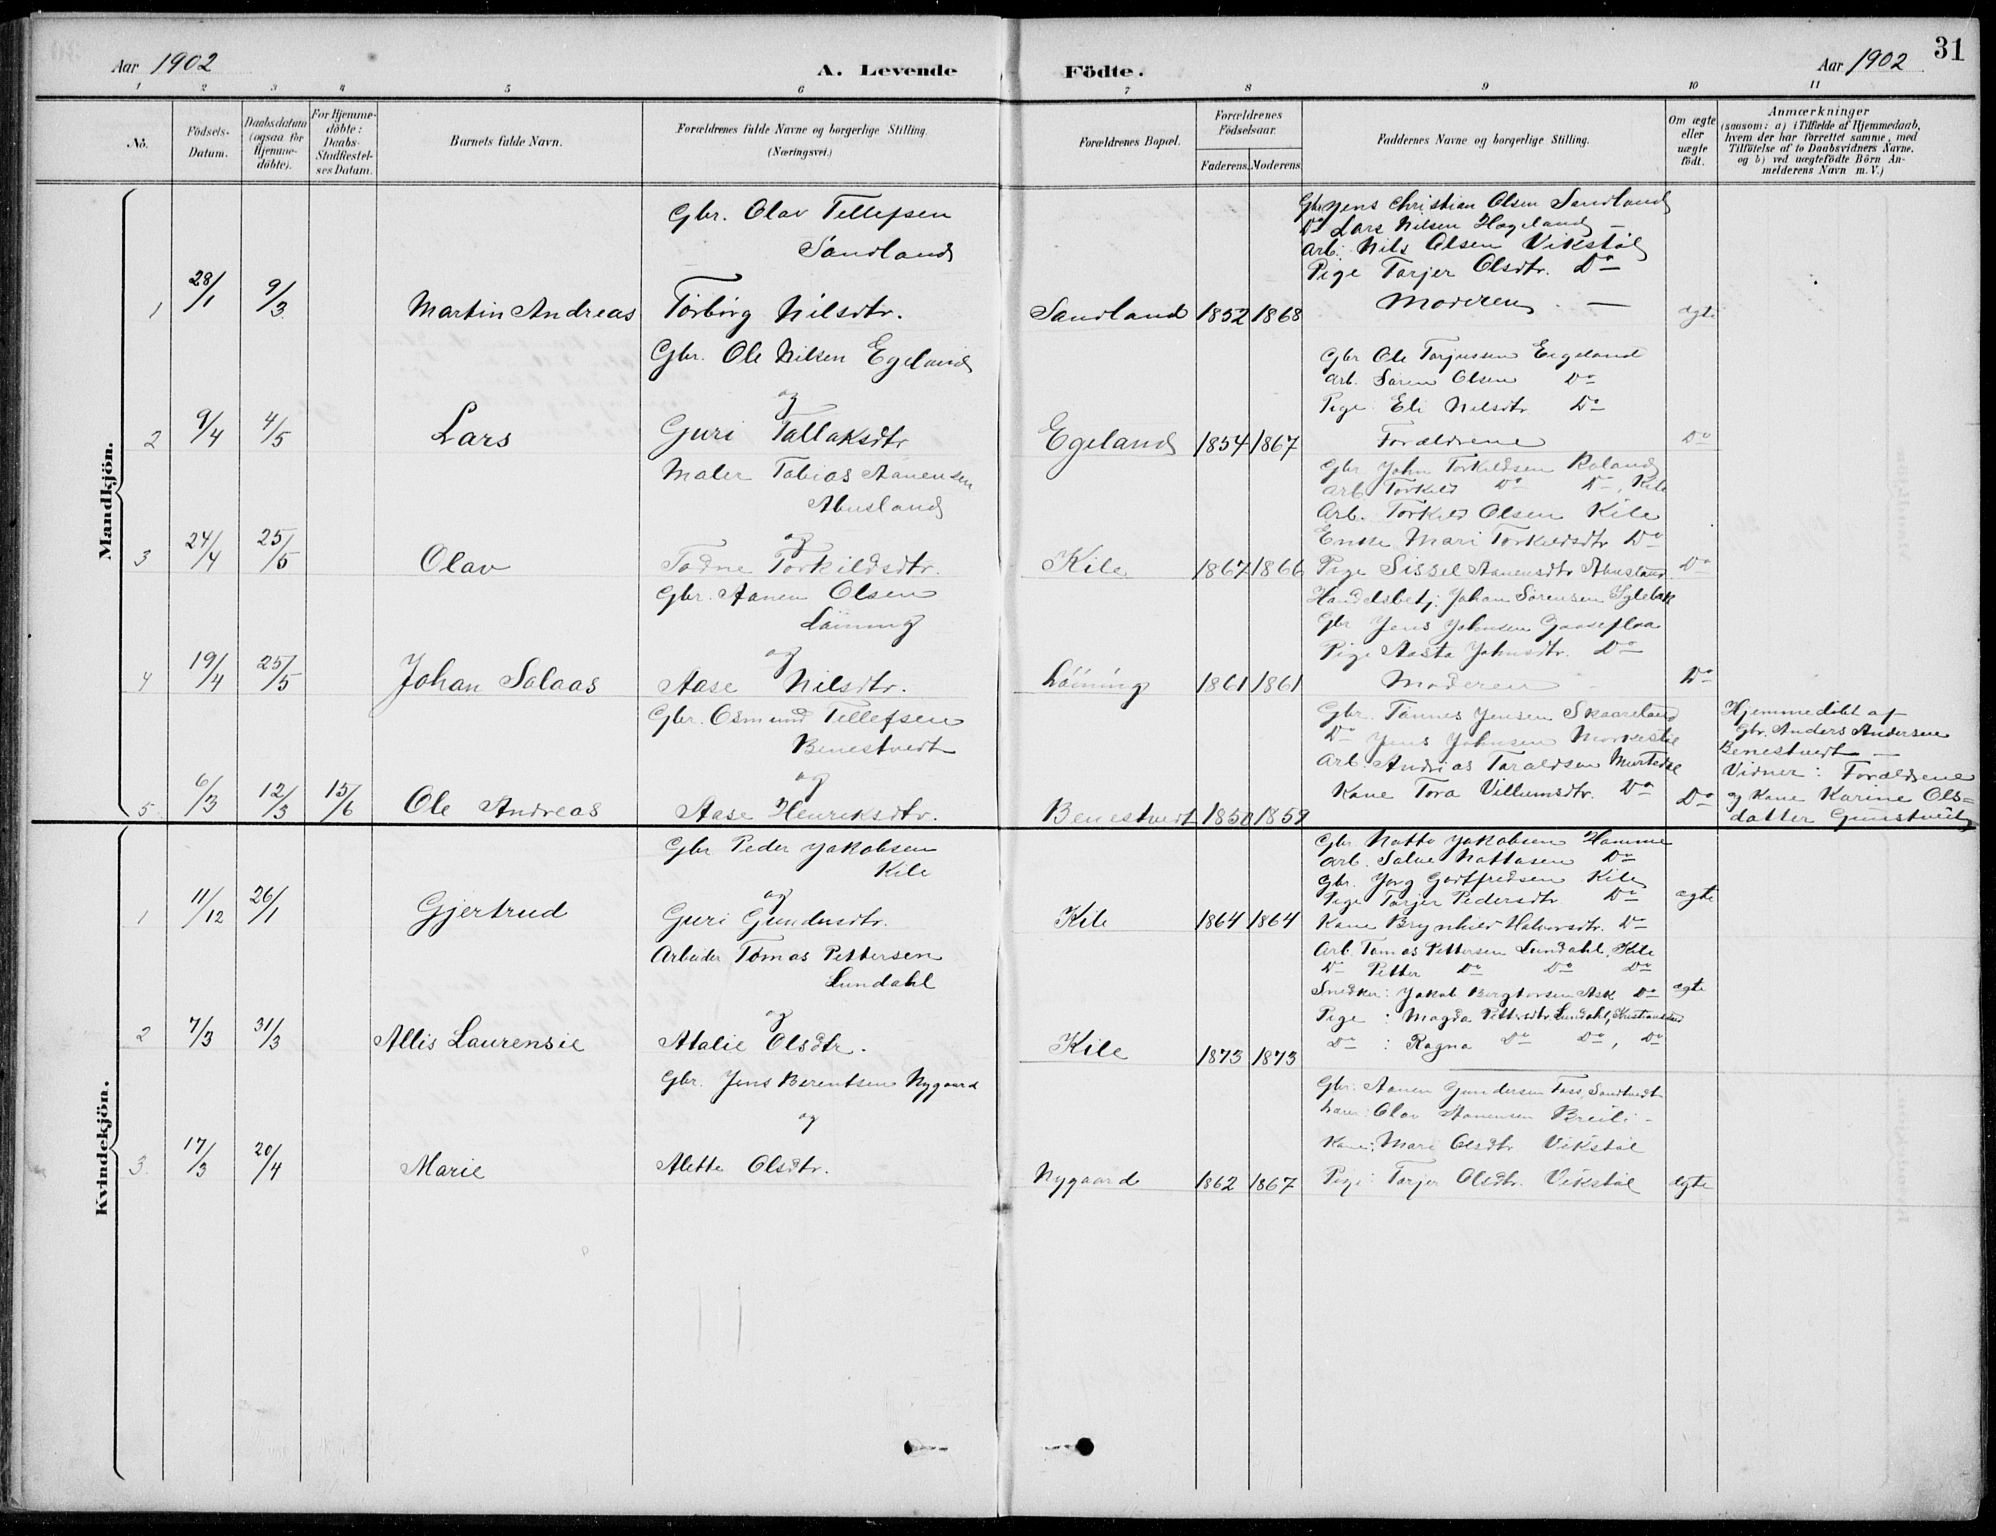 Aar 1902
A. Levende
Födte.
Aar 1902
31
1 2 3 4 5 6 7 8 9 10 11
No.
Födsels-
Datum.
Daabsdatum
(ogsaa for
Hjemme-
döbte).
For Hjemme-
döbte:
Daabs-
Stadfæstel-
ses Datum.
Barnets fulde Navn.
Forældrenes fulde Navne og borgerlige Stilling.
(Næringsvei.)
Forældrenes Bopæl.
Forældrenes
Födselsaar.
Faderens. Moderens.
Faddernes Navne og borgerlige Stilling.
Om ægte
eller
uægte
födt.
Anmærkninger
(saasom: a) i Tilfælde af Hjemmedaab,
hvem der har forrettet samme, med
Tilföielse af to Daabsvidners Navne,
og b) ved uægtefödte Börn An-
melderens Navn m. V.)
Mandkjön.
Gbr. Olav Tellefsen
Sandland
1 28/1 9/3 Martin Andreas Torborg Nilsdtr. Sandland 1852 1868
Gbr Jens Christian Olsen Sandland
Do Lars Nilsen Hageland
Arb. Nils Olsen Vikstøl
Pige Tarjer Olsdtr. Do
Moderen
ægte
Gbr. Ole Nilsen Egeland
og
2 9/4 4/5 Lars Guri Tallaksdtr Egeland 1854 1867
Gbr Ole Torjussen Eigeland
Arb. Søren Olsen Do
Pige Eli Nilsdtr Do
Forældrene
Do
Maler Tobias Aanensen
Abusland
og
3 24/4 25/5 Olav Todne Torkildsdtr. Kile 1867 1866
Gbr John Torkildsen Roland
Arb Torkild Do Do, Kile
Arb. Torkild Olsen Kile
Enke Mari Torkildsdtr Do
Pige Sissel Aanensdtr Abusland
Do
Gbr. Aanen Olsen
Løining
og
4 19/4 25/5 Johan Salaas Aase Nilsdtr. Løining 1861 1861
Handelsbetj. Johan Sørensen Iglebæk
Gbr Jens Johnsen Gaaseflaa
Pige Aasta Johnsdtr. Do
Moderen
Do
Gbr. Osmund Tellefsen
Benestvedt
og
5. 6/3 12/3 15/6 Ole Andreas Aase Henriksdtr. Benestvedt 1850 1859
Gbr. Tønnes Jensen Skaareland
Do Jens Johnsen
Arb. Andrias Taraldsen
Kone Tora Villumsdtr. Do
Do
Hjemmedøbt af
Gbr. Anders Andersen
Benestvedt
Vidner: Forældrene
og Kone Karine Ols=
datter
Kvindekjön.
Gbr Peder Jakobsen
Kile
og
1 11/12 26/1 Gjertrud Guri Gundersdtr. Kile 1864 1864
Gbr. Natto Jakobsen Homme
Arb. Salve Nattosen Do
Gbr. Jorg Godtfredsen Kile
Pige Tarjer Pedersdtr Do
Kone Brynhild Halvorsdtr. Do
ægte
Arbeider Tomas Pettersen
Lundahl
og
2 7/3 31/3 Allis Laurensie Atalie Olsdtr. Kile 1873 1873
Arb. Tomas Pettersen Lundahl, Kile
Do Petter Do Do Do
Snedker: Jakob Bergtorsen Ask Do
Pige : Magda Pettersdtr Lundahl, Kristiansand
Do : Ragna Do Do, Do
ægte
Gbr. Jens Berentsen Nygaard
og
3. 17/3 20/4 Marie Alette Olsdtr. Nygaard 1862 1867
Gbr: Aanen Gundersen Foss, Sandtvedt
Olav Aanensen Breili
Kone: Mari Olsdtr Vikstøl
Pige: Tarjer Olsdtr. Vikstøl
ægte